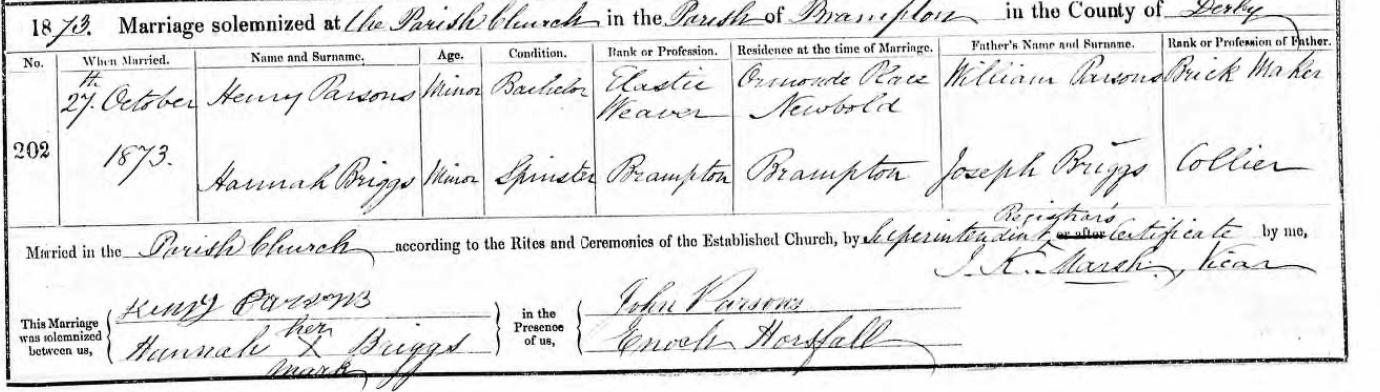 1873. Marriage solemnized at the Parish Church in the Parish of Brampton in the County of Derby
No. When Married. Name and Surname. Age. Condition. Rank or Profession. Residence at the time of Marriage. Father's Name and Surname. Rank or Profession of Father.
202
27th October Henry Parsons Minor Bachelor Elastic Weaver Ormonde Place Newbold William Parsons Brick Maker
1873. Hannah Briggs Minor Spinster Brampton Brampton Joseph Briggs Collier
Married in the Parish Church according to the Rites and Ceremonies of the Established Church, by Superintendent Registrar's or after Certificate by me,
J. K. Marsh, Vicar
This Marriage was solemnized between us,
Henry Parsons
Hannah her X mark Briggs
in the Presence of us,
John Parsons
Enoch Horsfall